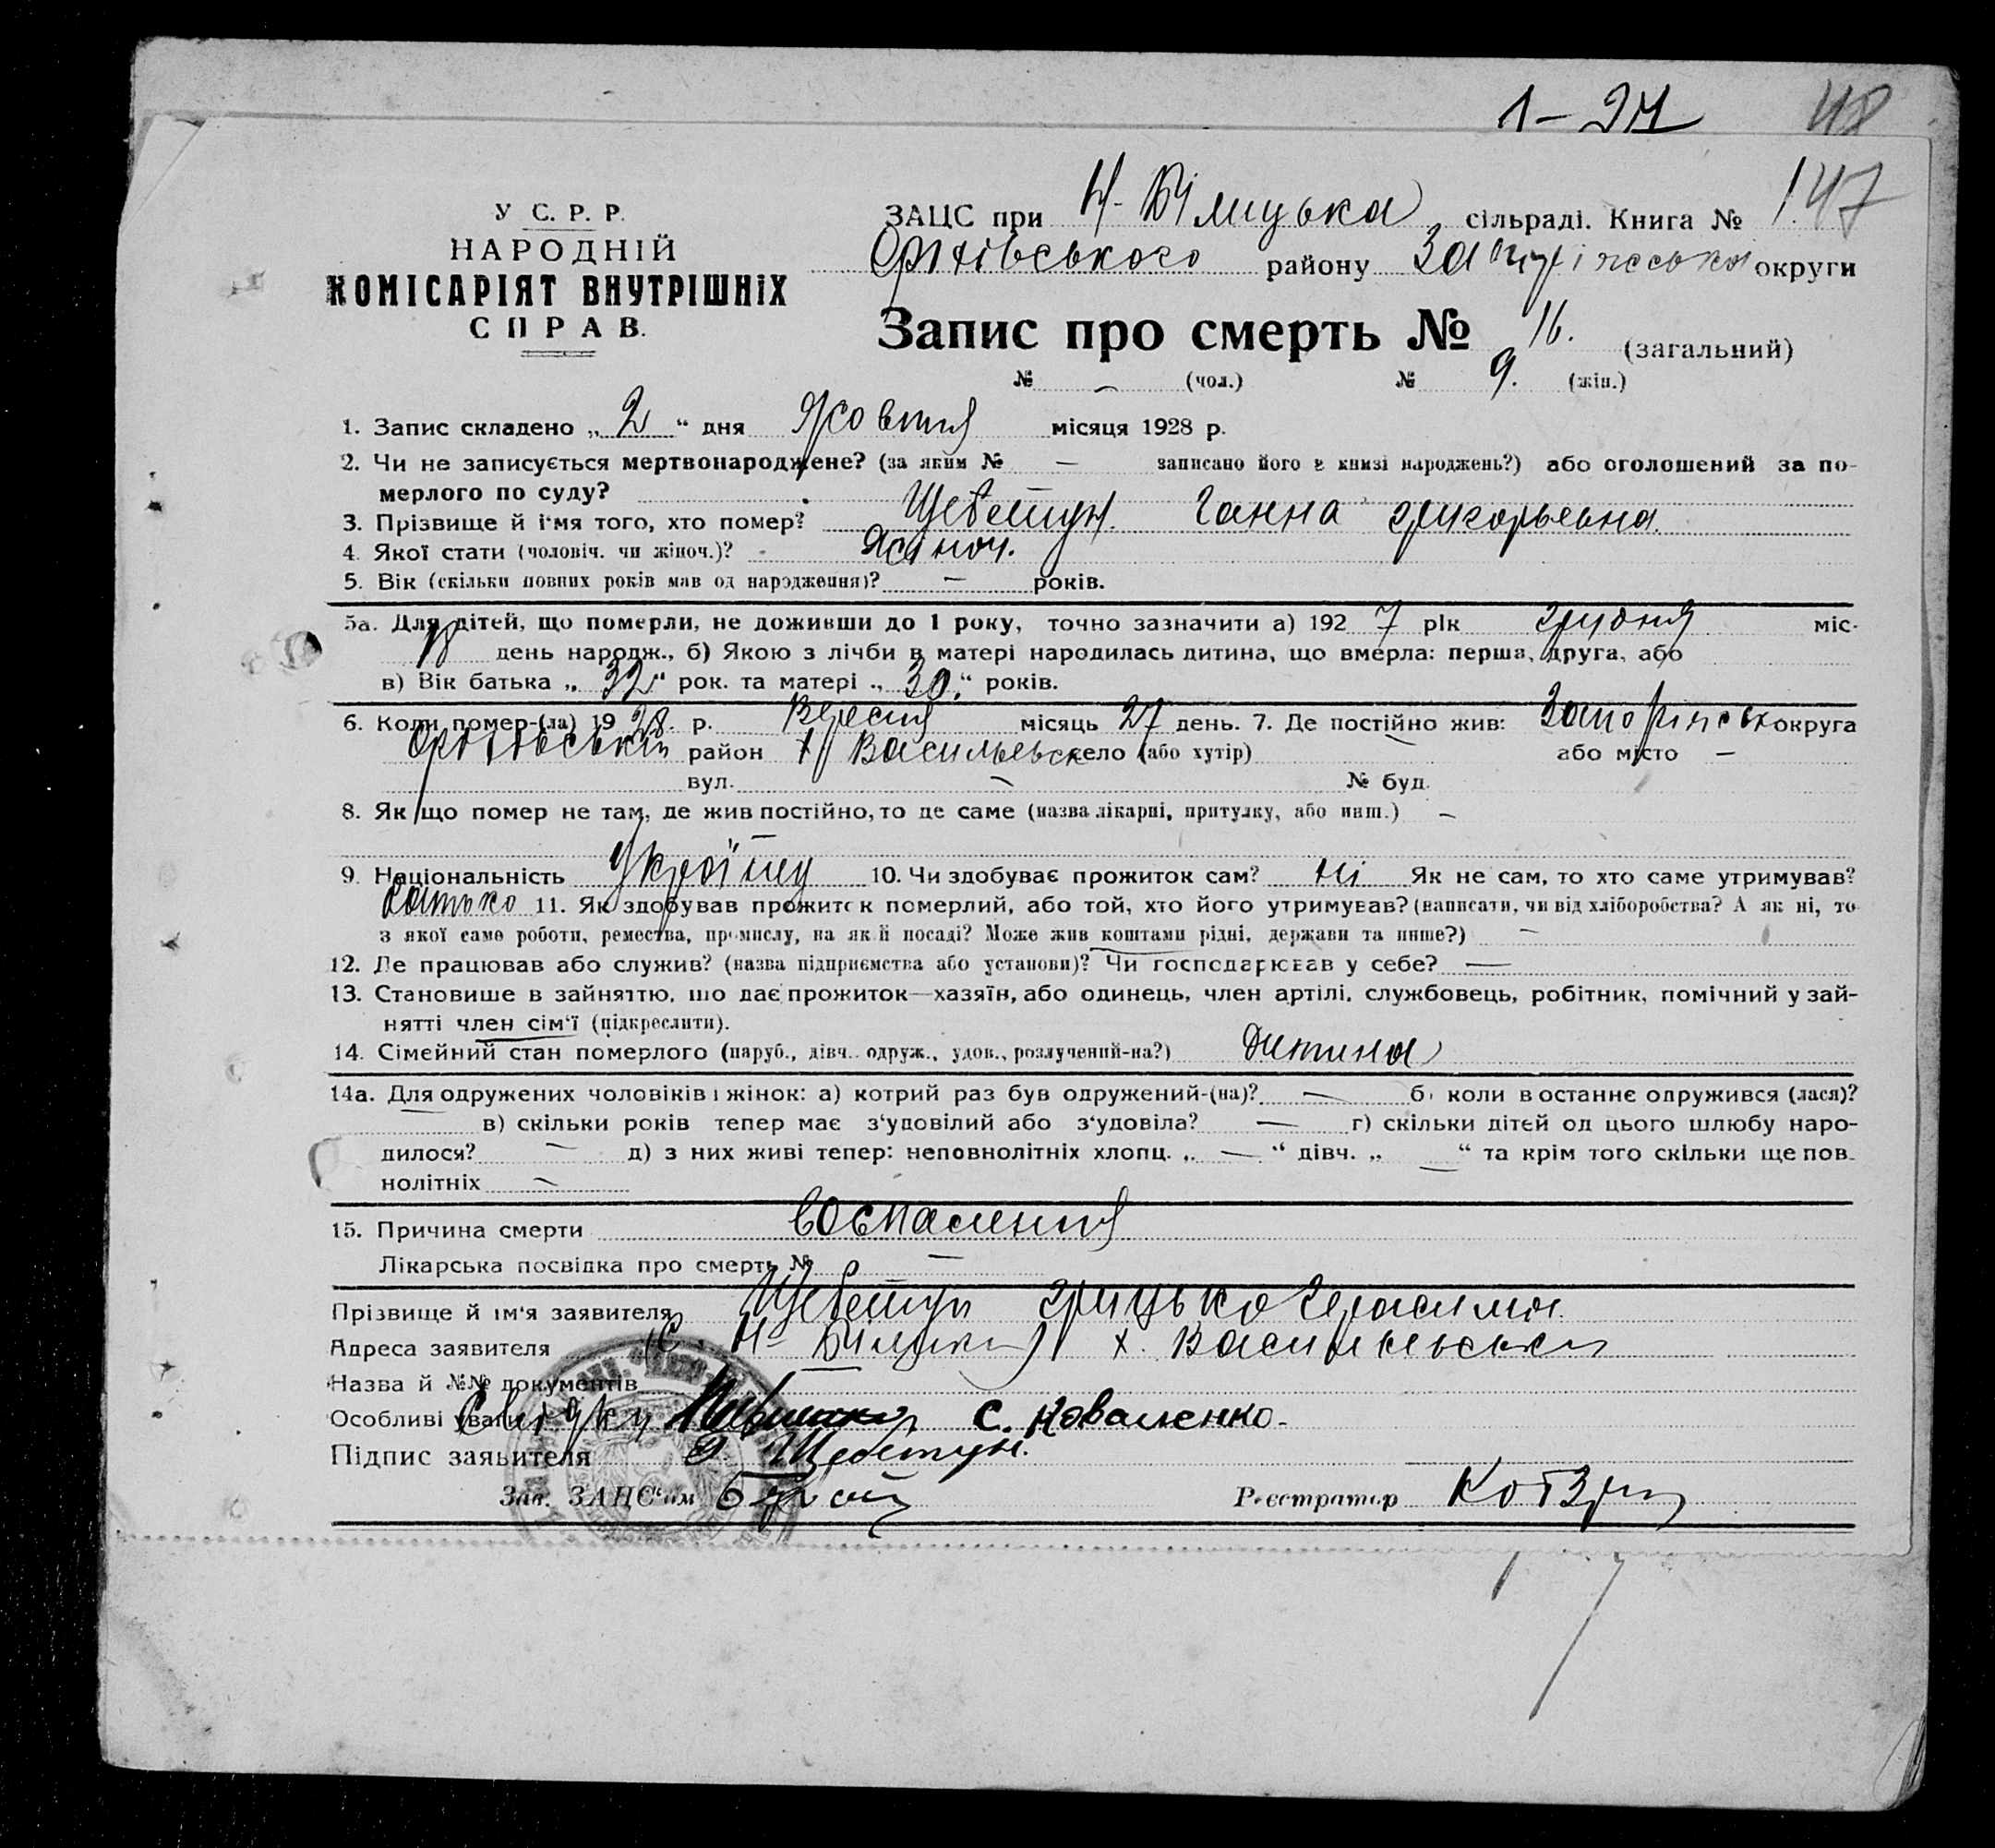 1 – 27 48
147
У С. Р. Р.
НАРОДНІЙ
КОМІСАРІЯТ ВНУТРІШНІХ
СПРАВ.
ЗАЦС при Н-Білицька сільраді. Книга № 1.
Оріхівського району Запорізька округи
Запис про смерть № 16. (загальний)
№ – (чол.) № 9. (жін.)
1. Запис складено „2“ дня Жовтня місяця 1928 р.
2. Чи не записується мертвонароджене? (за яким № — записано його в книзі народжень?) або оголошений за по-
мерлого по суду?
3. Прізвище й ім'я того, хто помер? Щебетун Ганна Григорьевна.
4. Якої стати (чоловіч. чи жіноч.)? Жіноч.
5. Вік (скільки повних років мав од народження)? — років.
5а. Для дітей, що померли, не доживши до 1 року, точно зазначити а) 1927 рік грудня міс.
день народж., б) Якою з лічби в матері народилась дитина, що вмерла: перша, друга, або
в) Вік батька „32“ рок. та матері „30.“ років.
6. Коли помер-(ла) 1928. р. Вересня місяць 27 день. 7. Де постійно жив: Запорізськ округа
Оріхівський район х Васильевськ село (або хутір) – або місто –
вул. – № буд.
8. Як що помер не там, де жив постійно, то де саме (назва лікарні, притулку, або инш.) –
9. Національність Україну 10. Чи здобуває прожиток сам? ні Як не сам, то хто саме утримував?
батько 11. Як здобував прожиток померлий, або той, хто його утримував? (написати, чи від хліборобства? А як ні, то
з якої саме роботи, ремества, промислу, на якій посаді? Може жив коштами рідні, держави та инше?) –
12. Де працював або служив? (назва підприємства або установи)? Чи господарював у себе? —
13. Становище в зайняттю, що дає прожиток—хазяїн, або одинець, член артілі, службовець, робітник, помічний у зай-
нятті член сім'ї (підкреслити).
14. Сімейний стан померлого (паруб., дівч. одруж., удов., розлучений-на?) дитина
14а. Для одружених чоловіків і жінок: а) котрий раз був одружений-(на)? — б) коли востаннє одружився (лася)?
в) скільки років тепер має з'удовілий або з'удовіла? — г) скільки дітей од цього шлюбу наро-
дилося? – д) з них живі тепер: неповнолітніх хлопц. „—“ дівч. „—“ та крім того скільки ще пов-
нолітніх –
15. Причина смерти воспаления
Лікарська посвідка про смерть № –
Прізвище й ім'я заявителя Щебетун Грицько Герасимо.
Адреса заявителя (С. Н-Білицьки) х. Васильевськи
Назва й №№ документів
Особливі уваги Свідки С. Коваленко.
Підпис заявителя Щебетун.
Зав. ЗАЦС'ом Реєстратор